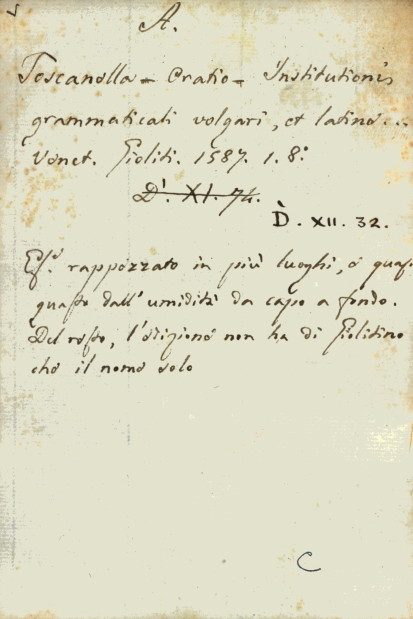 A.
Toscanella = Oratio = Institutioni
grammaticali volgari, et latine...
Venet. Gioliti. 1587. 1. 8.º
D'. XI. 74.
D̀. XII. 32.
Es.º rappezzato in più luoghi, e
guasto dall'umidità da capo a fondo.
Del resto, l'edizione non ha di Giolitino
che il nome solo
C